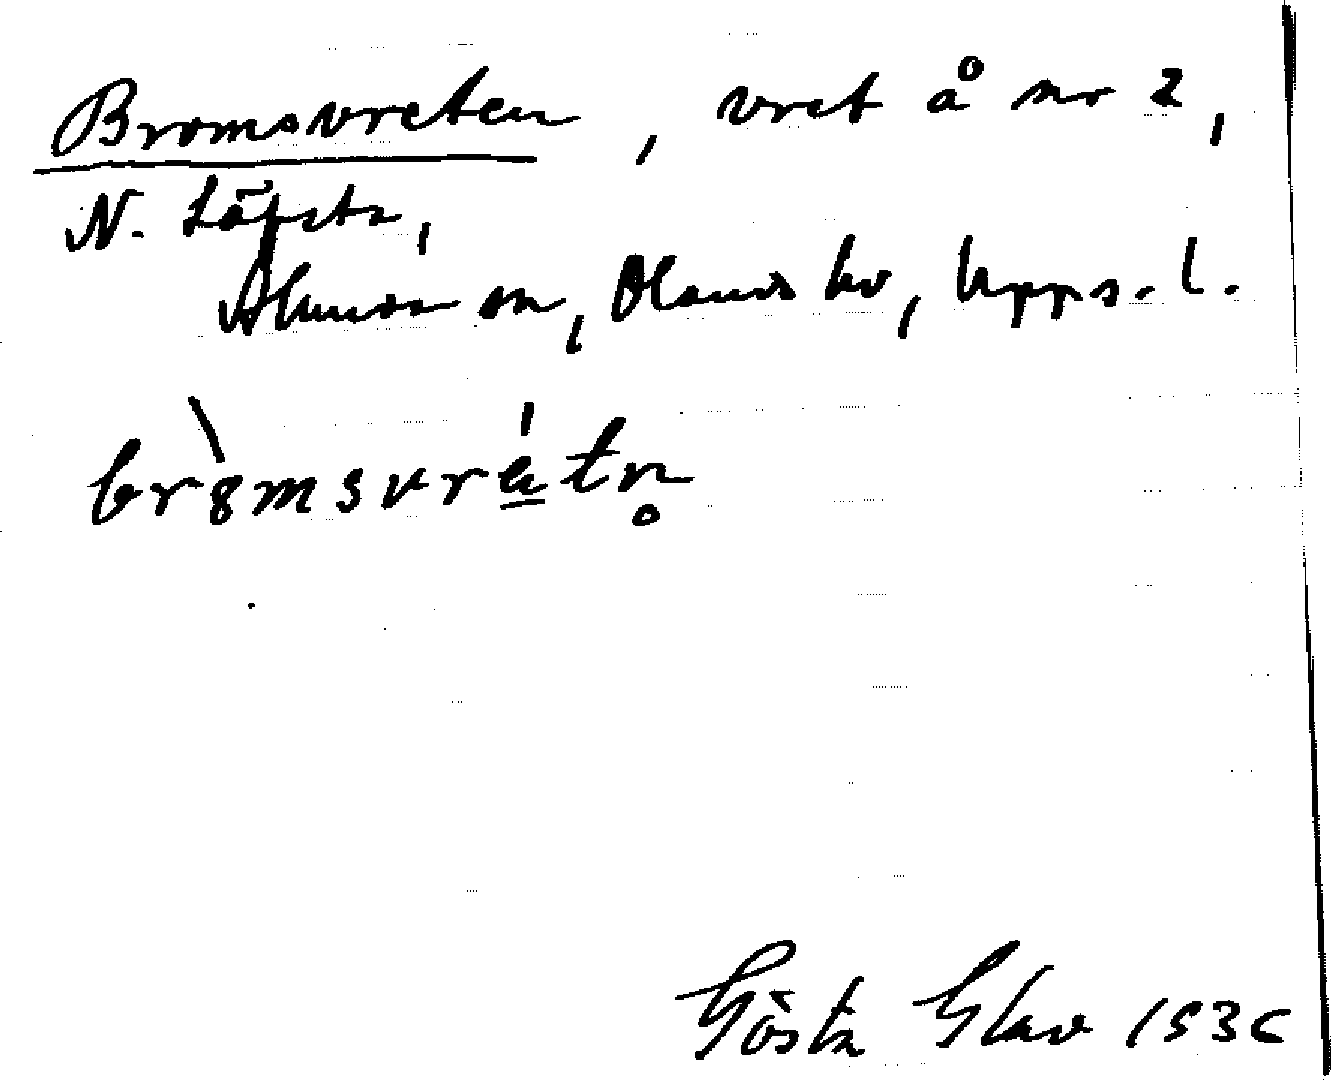 Bromsvreten, vret å nr 2,
N. Löfsta,
Alunda sn, Olands hd, Upps. l.
bròmsvrétn̥
Gösta Glav 1936